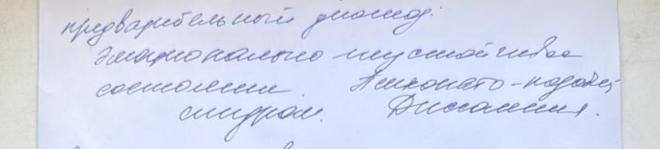 предварительный диагноз:
Эмоционально неустойчивое
состояние. Психопато-подобн
синдром. Диссомния.